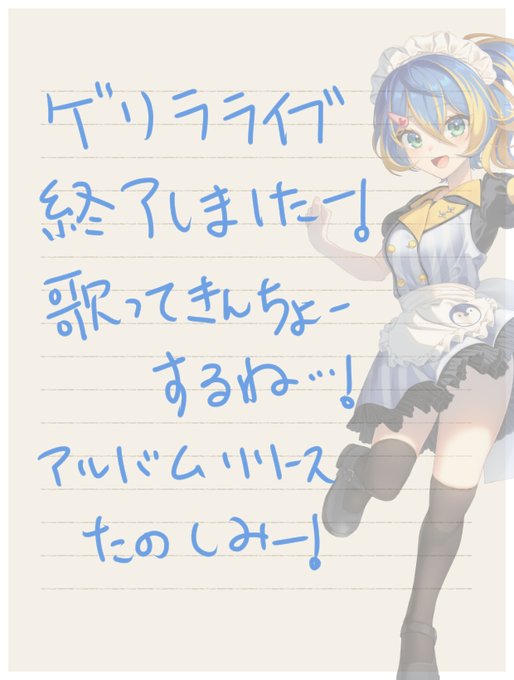 ゲリラライブ
終了しましたー!
歌ってきんちょー
するね…!
アルバムリリース
たのしみー!